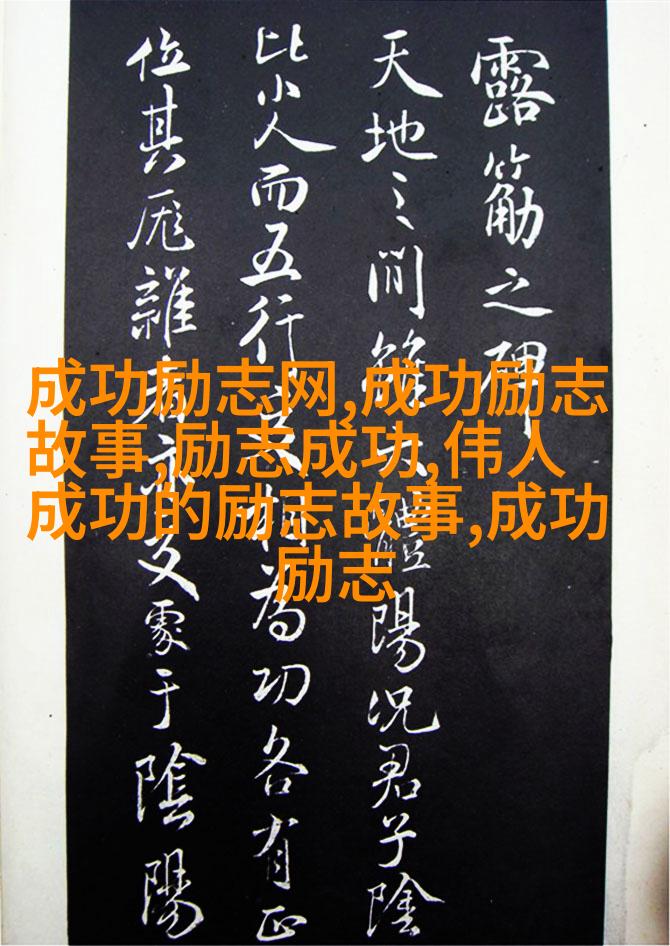 成功励志网,成功励志
故事,励志成功,伟人
成功的励志故事,成功
励志
露筋之碑
天地之間雖大體陽況君子陰
比小人而五行更相為功各有正
位其厖雜者亦處于陰陽